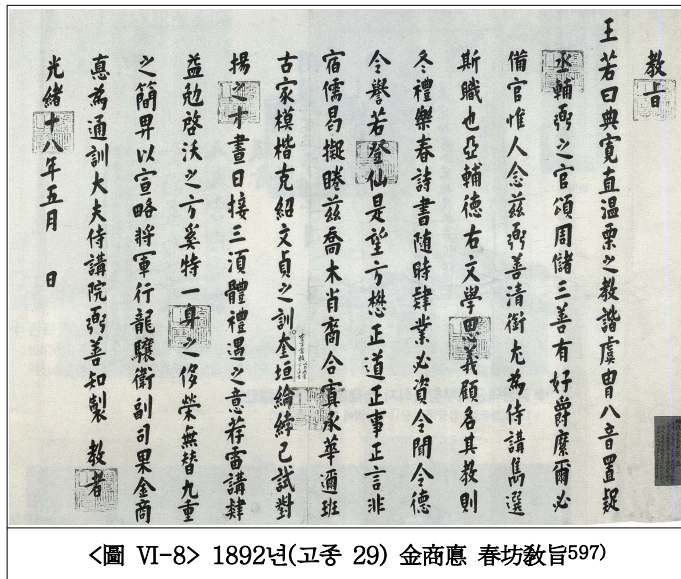 教旨
王若曰典寬直温栗之教諧虞胄八音置疑
丞輔弼之官頌周儲三善有好爵縻爾必
備官惟人念茲弼善清銜尤為侍講雋選
斯職也亞輔德右文學思義顧名其教則
冬禮樂春詩書隨時肄業必資令聞令德
令譽若登仙是望方懋正道正事正言非
宿儒曷擬睠茲喬木肖裔合寘承華邇班
古家模楷克紹文貞之訓奎垣綸綍已試對
揚之才晝日接三湏體禮遇之意荐雷講肄
益勉啓沃之方奚特一身之侈榮無替九重
之簡畀以宣略將軍行龍驤衛副司果金商
悳為通訓大夫侍講院弼善知製 教者
光緒十八年五月 日
<圖 VI-8> 1892년(고종 29) 金商悳 春坊敎旨597)